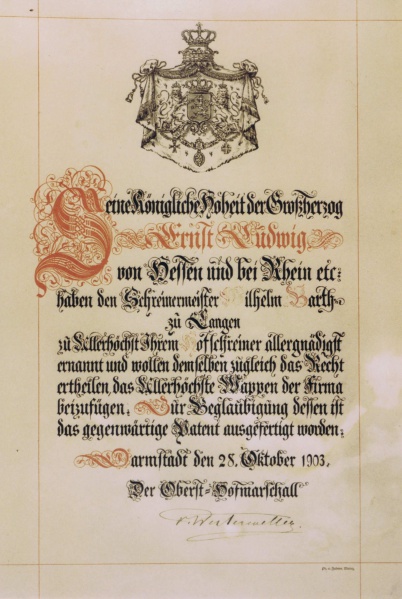 Seine Königliche Hoheit der Großherzog
Ernst Ludwig
von Hessen und bei Rhein etc:
haben den Schreinermeister Wilhelm Barth
zu Langen
zu Allerhöchst Ihrem Hofschreiner allergnädigst
ernannt und wollen demselben zugleich das Recht
ertheilen, das Allerhöchste Wappen der Firma
beizufügen. Zur Beglaubigung dessen ist
das gegenwärtige Patent ausgefertigt worden.
Darmstadt den 28. Oktober 1903.
Der Oberst-Hofmarschall
v. Westerweller.